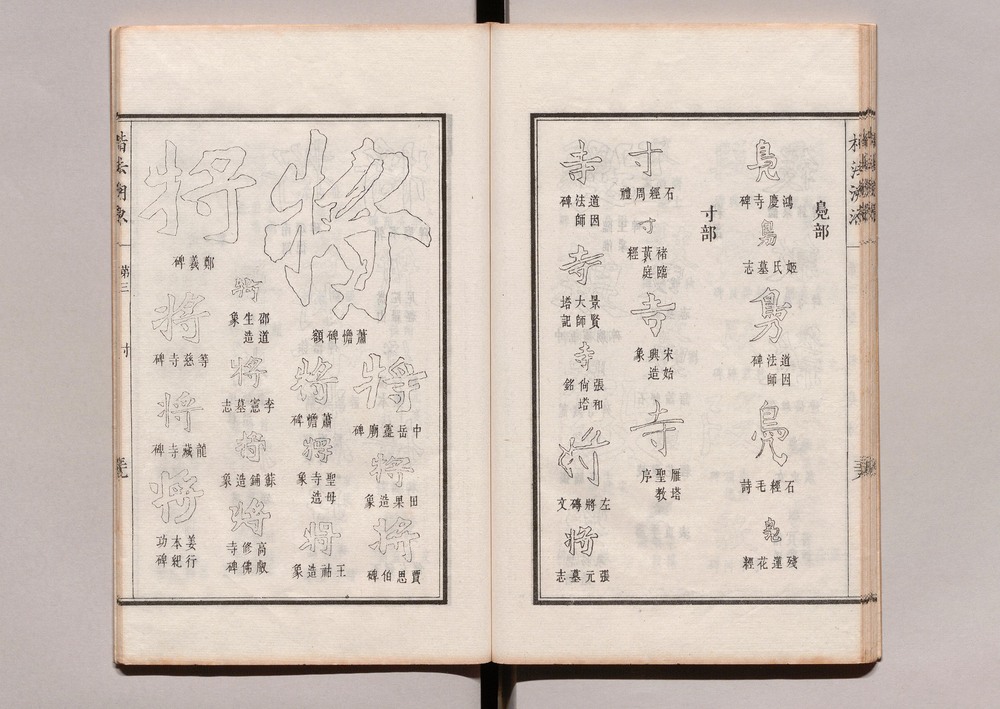 鳧部
鳧
鴻慶寺碑
鳧
姬氏墓志
鳧
道因法師碑
鳧
石經毛詩
鳧
殘蓮花經
寸部
寸
石經周禮
寸
褚臨黃庭經
寺
宋始興造象
寺
雁塔聖教序
寺
道因法師碑
寺
景賢大師塔記
寺
張和尙塔銘
將
左將磚文
將
張元墓志
將
蕭憺碑額
將
中岳靈廟碑
將
田果造象
將
賈思伯碑
將
蕭憺碑
將
聖母寺造象
將
王祐造象
將
邵道生造象
將
李憲墓志
將
蘇鋪造象
將
高叡修佛寺碑
將
鄭義碑
將
等慈寺碑
將
龍藏寺碑
將
姜行本紀功碑
楷法溯源
第三
寸